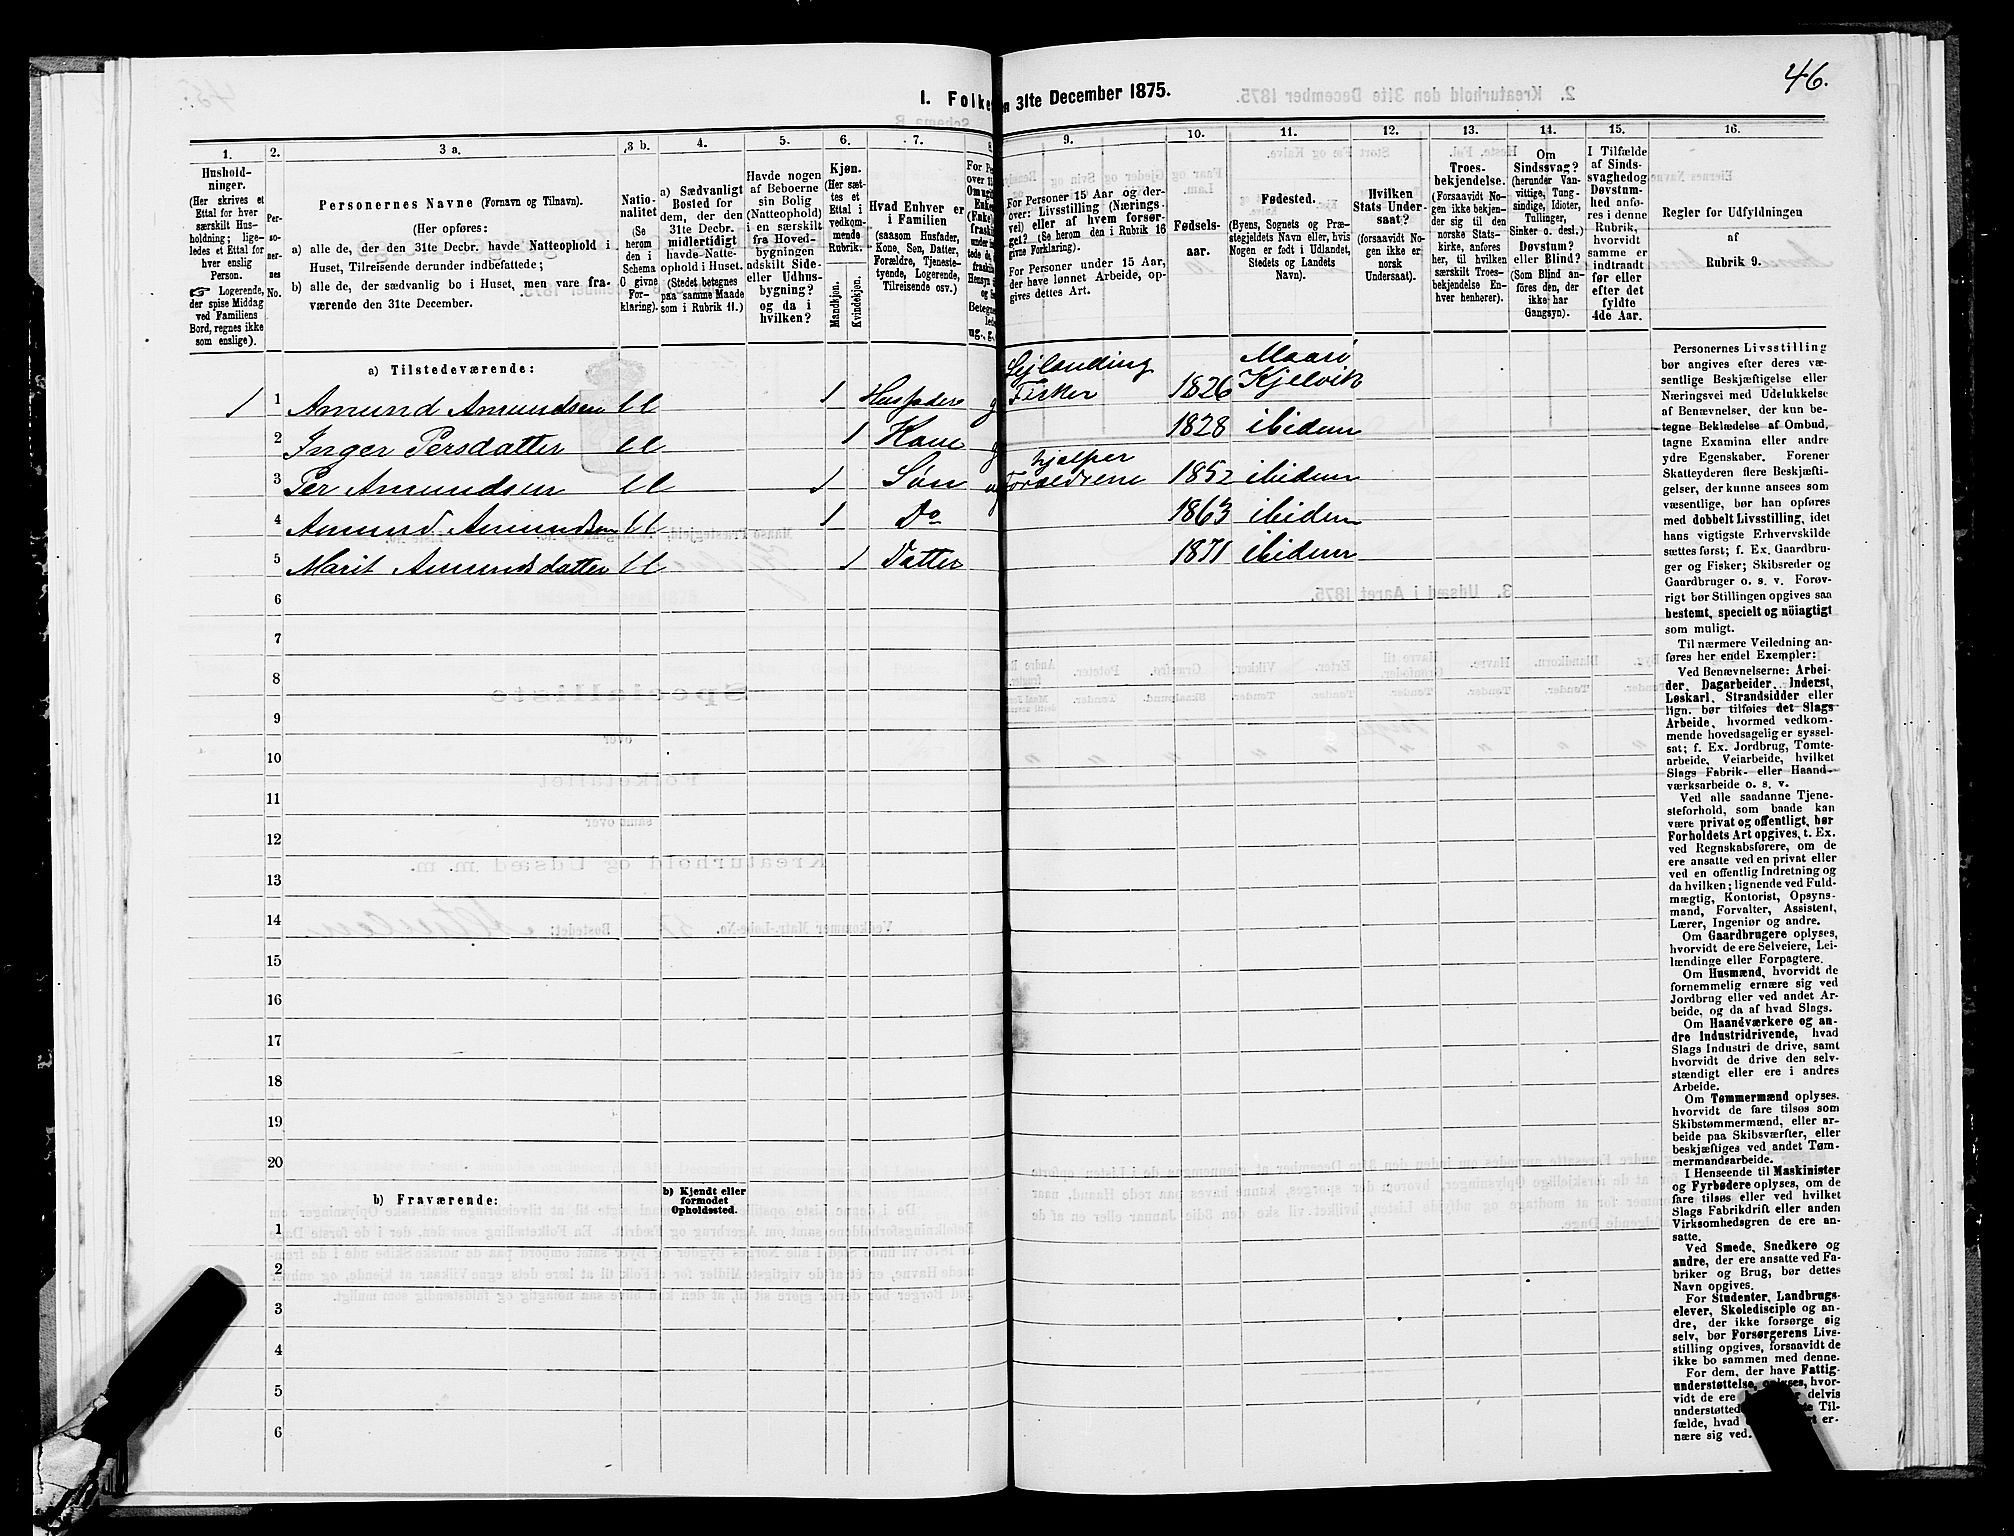 46.
1. Folke
n 31te December 1875.
1.
2.
3 a.
3 b.
4.
5.
6.
7.
8.
9.
10.
11.
12.
13.
14.
15.
16.
Husholdninger.
(Her skrives et Ettal for hver særskilt Husholdning; ligeledes et Ettal for hver enslig Person.
Logerende, der spise Middag ved Familiens Bord, regnes ikke som enslige).
Personernes No.
Personernes Navne (Fornavn og Tilnavn).
(Her opføres:
a) alle de, der den 31te Decbr. havde Natteophold i Huset, Tilreisende derunder indbefattede;
b) alle de, der sædvanlig bo i Huset, men vare fraværende den 31te December.
Nationalitet (Se herom den i Schema O givne Forklaring).
a) Sædvanligt Bosted for dem, der den 31te Decbr. midlertidigt havde Natteophold i Huset. (Stedet betegnes paa samme Maade som i Rubrik 11.)
Havde nogen af Beboerne sin Bolig (Natteophold) i en særskilt fra Hovedbygningen adskilt Side- eller Udhusbygning? og da i hvilken?
Kjøn. (Her sættes et Ettal i vedkommende Rubrik.
Mandkjøn.
Kvindekjøn.
Hvad Enhver er i Familien
(saasom Husfader, Kone, Søn, Datter, Forældre, Tjenestetyende, Logerende, Tilreisende osv.)
ug., g.,
For Personer 15 Aar og derover: Livsstilling (Næringsvei) eller af hvem forsørget? (Se herom den i Rubrik 16 givne Forklaring).
For Personer under 15 Aar, der have lønnet Arbeide, opgives dettes Art.
Fødselsaar.
Fødested.
(Byens, Sognets og Præstegjeldets Navn eller, hvis Nogen er født i Udlandet, Stedets og Landets Navn).
Hvilken Stats Undersaat?
(forsaavidt Nogen ikke er norsk Undersaat).
Troesbekjendelse.
(Forsaavidt Nogen ikke bekjender sig til den norske Statskirke, anføres her, til hvilken særskilt Troesbekjendelse Enhver henhører).
Om Sindssvag? (herunder Vanvittige, Tungsindige, Idioter, Tullinger, Sinker o. desl.)
Døvstum? eller Blind?
(Som Blind anføres den, der ikke har Gangsyn).
I Tilfælde af Sindssvaghed og Døvstumhed anføres i denne Rubrik, hvorvidt samme er indtraadt før eller efter det fyldte 4de Aar.
Regler for Udfyldningen
af
Rubrik 9.
a) Tilstedeværende:
1 1 Amund Amundsen 1 Husfader g Sejlanding Fisker 1826 Maasø Kjelvik
2 Inger Persdatter 1 Kone g 1828 ibidem
3 Per Amundsen 1 Søn hjælper Forældrene 1852 ibidem
4 Amund Amundsen 1 Do 1863 ibidem
5 Marit Amundsdatter 1 Datter 1871 ibidem
6
7
8
9
10
11
12
13
14
15
16
17
18
19
20
b) Fraværende:
b) Kjendt eller formodet Opholdssted.
1
2
3
4
5
6
Personernes Livsstilling
bør angives efter deres væ-
sentlige Beskjæftigelse eller
Næringsvei med Udelukkelse
af Benævnelser, der kun be-
tegne Beklædelse af Ombud,
tagne Examina eller andre
ydre Egenskaber. Forener
Skatteyderen flere Beskjæfti-
gelser, der kunne ansees som
væsentlige, bør han opføres
med dobbelt Livsstilling, idet
hans vigtigste Erhvervskilde
sættes først; f. Ex. Gaardbru-
ger og Fisker; Skibsreder og
Gaardbruger o. s. v. Forøv-
rigt bør Stillingen opgives saa
bestemt, specielt og nöiagtigt
som muligt.
Til nærmere Veiledning an-
føres her endel Exempler:
Ved Benævnelserne: Arbei-
der, Dagarbeider, Inderst,
Løskarl, Strandsidder eller
lign. bør tilføies det Slags
Arbeide, hvormed vedkom-
mende hovedsagelig er syssel-
sat; f. Ex. Jordbrug, Tømte-
arbeide, Veiarbeide, hvilket
Slags Fabrik- eller Haand-
værksarbeide o. s. v.
Ved alle saadanne Tjene-
steforhold, som baade kan
være privat og offentligt, bør
Forholdets Art opgives, t. Ex.
ved Regnskabsførere, om de
ere ansatte ved en privat eller
ved en offentlig Indretning og
da hvilken; lignende ved Fuld-
mægtig, Kontorist, Opsyns-
mand, Forvalter, Assistent,
Lærer, Ingeniør og andre.
Om Gaardbrugere oplyses,
hvorvidt de ere Selveiere, Lei-
lændinge eller Forpagtere.
Om Husmænd, hvorvidt de
fornemmelig ernære sig ved
Jordbrug eller ved andet Ar-
beide, og da af hvad Slags.
Om Haandværkere og an-
dre Industridrivende, hvad
Slags Industri de drive, samt
hvorvidt de drive den selv-
stændigt eller ere i andres
Arbeide.
Om Tømmermænd oplyses.
hvorvidt de fare tilsøs som
Skibstømmermænd, eller ar-
beide paa Skibsværfter, eller
beskjæftiges ved andet Tøm-
mermandsarbeide.
I Henseende til Maskinister
og Fyrbødere oplyses, om de
fare tilsøs eller ved hvilket
Slags Fabrikdrift eller anden
Virksomhedsgren de ere an-
satte.
Ved Smede, Snedkere og
andre, der ere ansatte ved Fa-
briker og Brug, bør dettes
Navn opgives.
For Studenter, Landbrugs-
elever, Skoledisciple og an-
dre, der ikke forsørge sig
selv, bør Forsørgerens Livs-
stilling opgives, forsaavidt de
ikke bo sammen med denne.
For dem, der have Fattig-
understøttelse, oplyses, hvor-
vidt de ere delvis
understøttede Til-
fælde, hvad er-
nære sig ved.